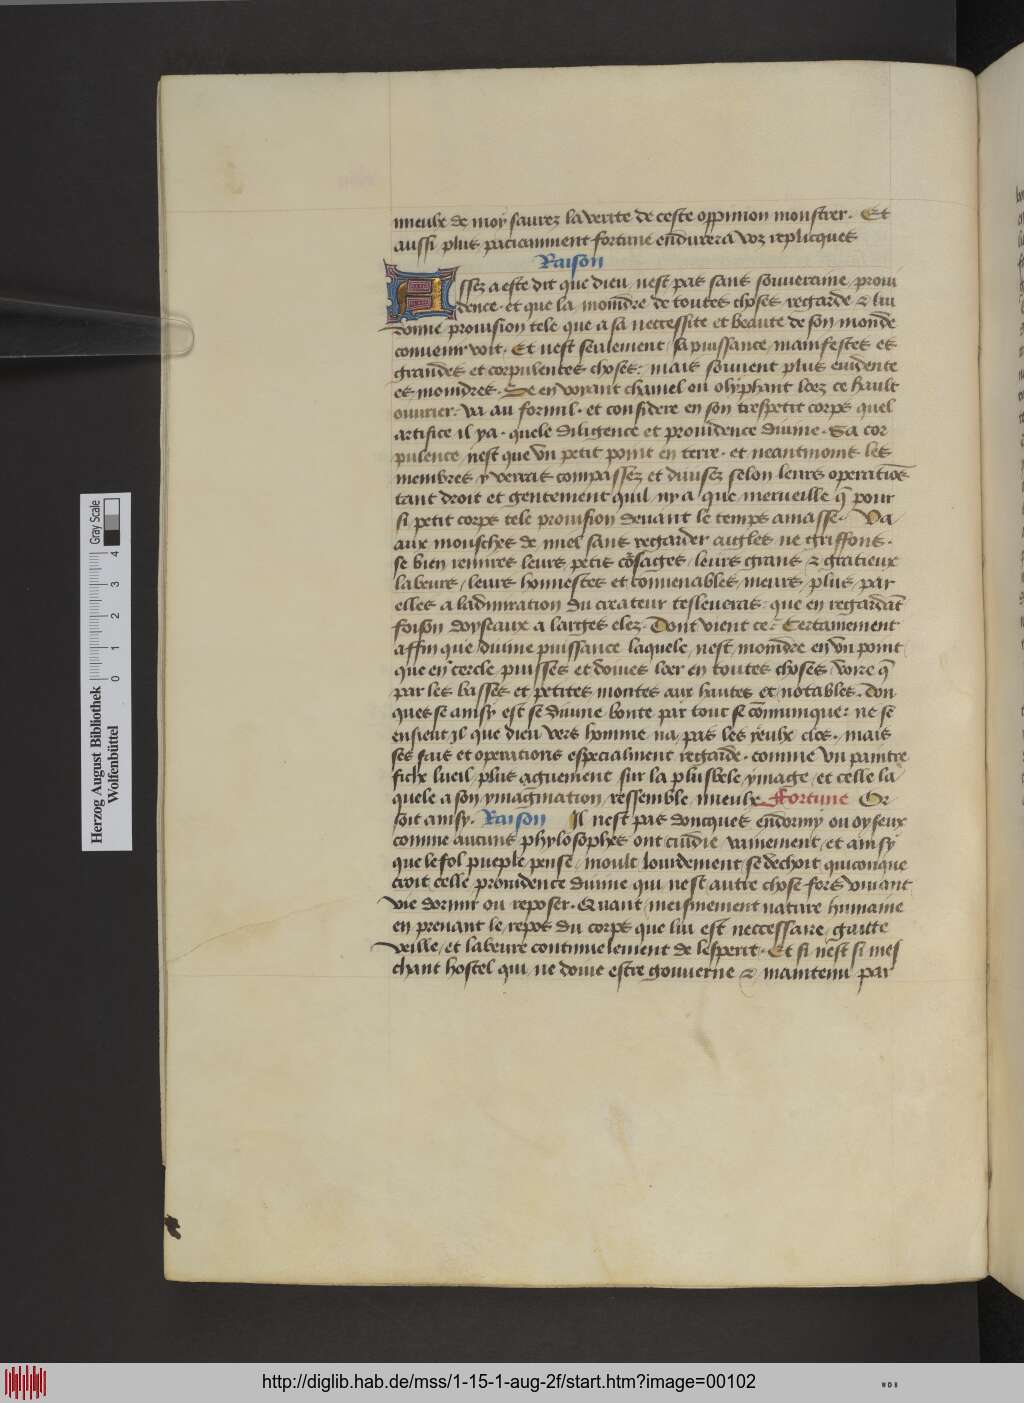 mieulx de moy saurez la verite de ceste oppinion monstrer. Et
aussi plus paciamment fortune endurera voz replicques
Raison
Assez a este dit que dieu nest pas sans souveraine provi
dence. et que la moindre de toutes choses regarde & lui
donne provision tele que a sa necessite et beaute de son monde
convenir voit. Et nest seulement sa puissance manifestee es
grandes et corpulentes choses: mais souvent plus evidente
es moindres. Se en voyant chamel ou olyphant loez ce hault
ouvrier: va au formil. et considere en son trespetit corps quel
artifice il ya. quele diligence et providence divine. Sa cor
pulence nest que vn petit point en terre. et neantmoins les
membres y verras compassez et divisez selon leurs operatiōs
tant droit et gentement quil ny a que merueille q̄ pour
si petit corps tele provision devant le temps amasse. Va
aux mousches de miel sans regarder aigles ne griffons.
se bien remires leurs petis cōsages leurs grans & gratieux
labeurs leurs honnestes et convenables meurs plus par
elles a ladmiration du createur tesleveras que en regardāt
foison doyseaux a larges elez. Dont vient ce? Certainement
affin que divine puissance laquele nest moindre en vn point
que en cercle puisses et doives loer en toutes choses voire q̄
par les basses et petites montes aux haultes et notables. Don
ques se ainsy est se divine bonte par tout se cōmunique: ne se
ensieut il que dieu vers homme na pas les yeulx clos. mais
ses fais et operations especialment regarde. comme vn paintre
fiche lueil plus aguement sur la plusbele ymage et celle la
quele a son ymagination ressemble mieulx Fortune Or
soit ainsy. Raison Il nest pas doncques endormy ou oyseux
comme aucuns phylosophes ont cuidie vainement et ainsy
que le fol pueple pense moult lourdement se dechoit quiconque
croit celle providence divine qui nest autre chose fors vivant
vie dormir ou reposer. Quant meismement nature humaine
en prenant le repos du corps que lui est neccessaire guitte
veille et labeure continuelement de lesperit. Et si nest si mes
chant hostel qui ne doive estre gouverne & maintenu par
Herzog August Bibliothek
Wolfenbüttel
0 1 2 3 4
Gray Scale
http://diglib.hab.de/mss/1-15-1-aug-2f/start.htm?image=00102